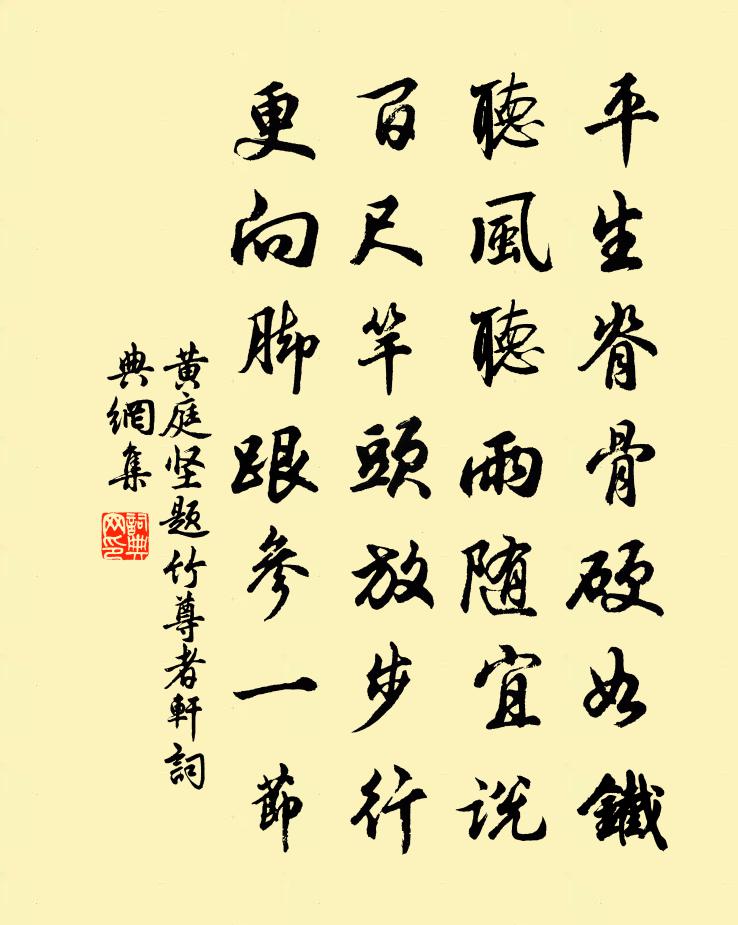 平生脊骨硬如鐵
聽風聽雨随宜説
百尺竿頭放步行
更向脚跟參一節
黄庭坚题竹尊者軒詞
典網集
詞典
网印